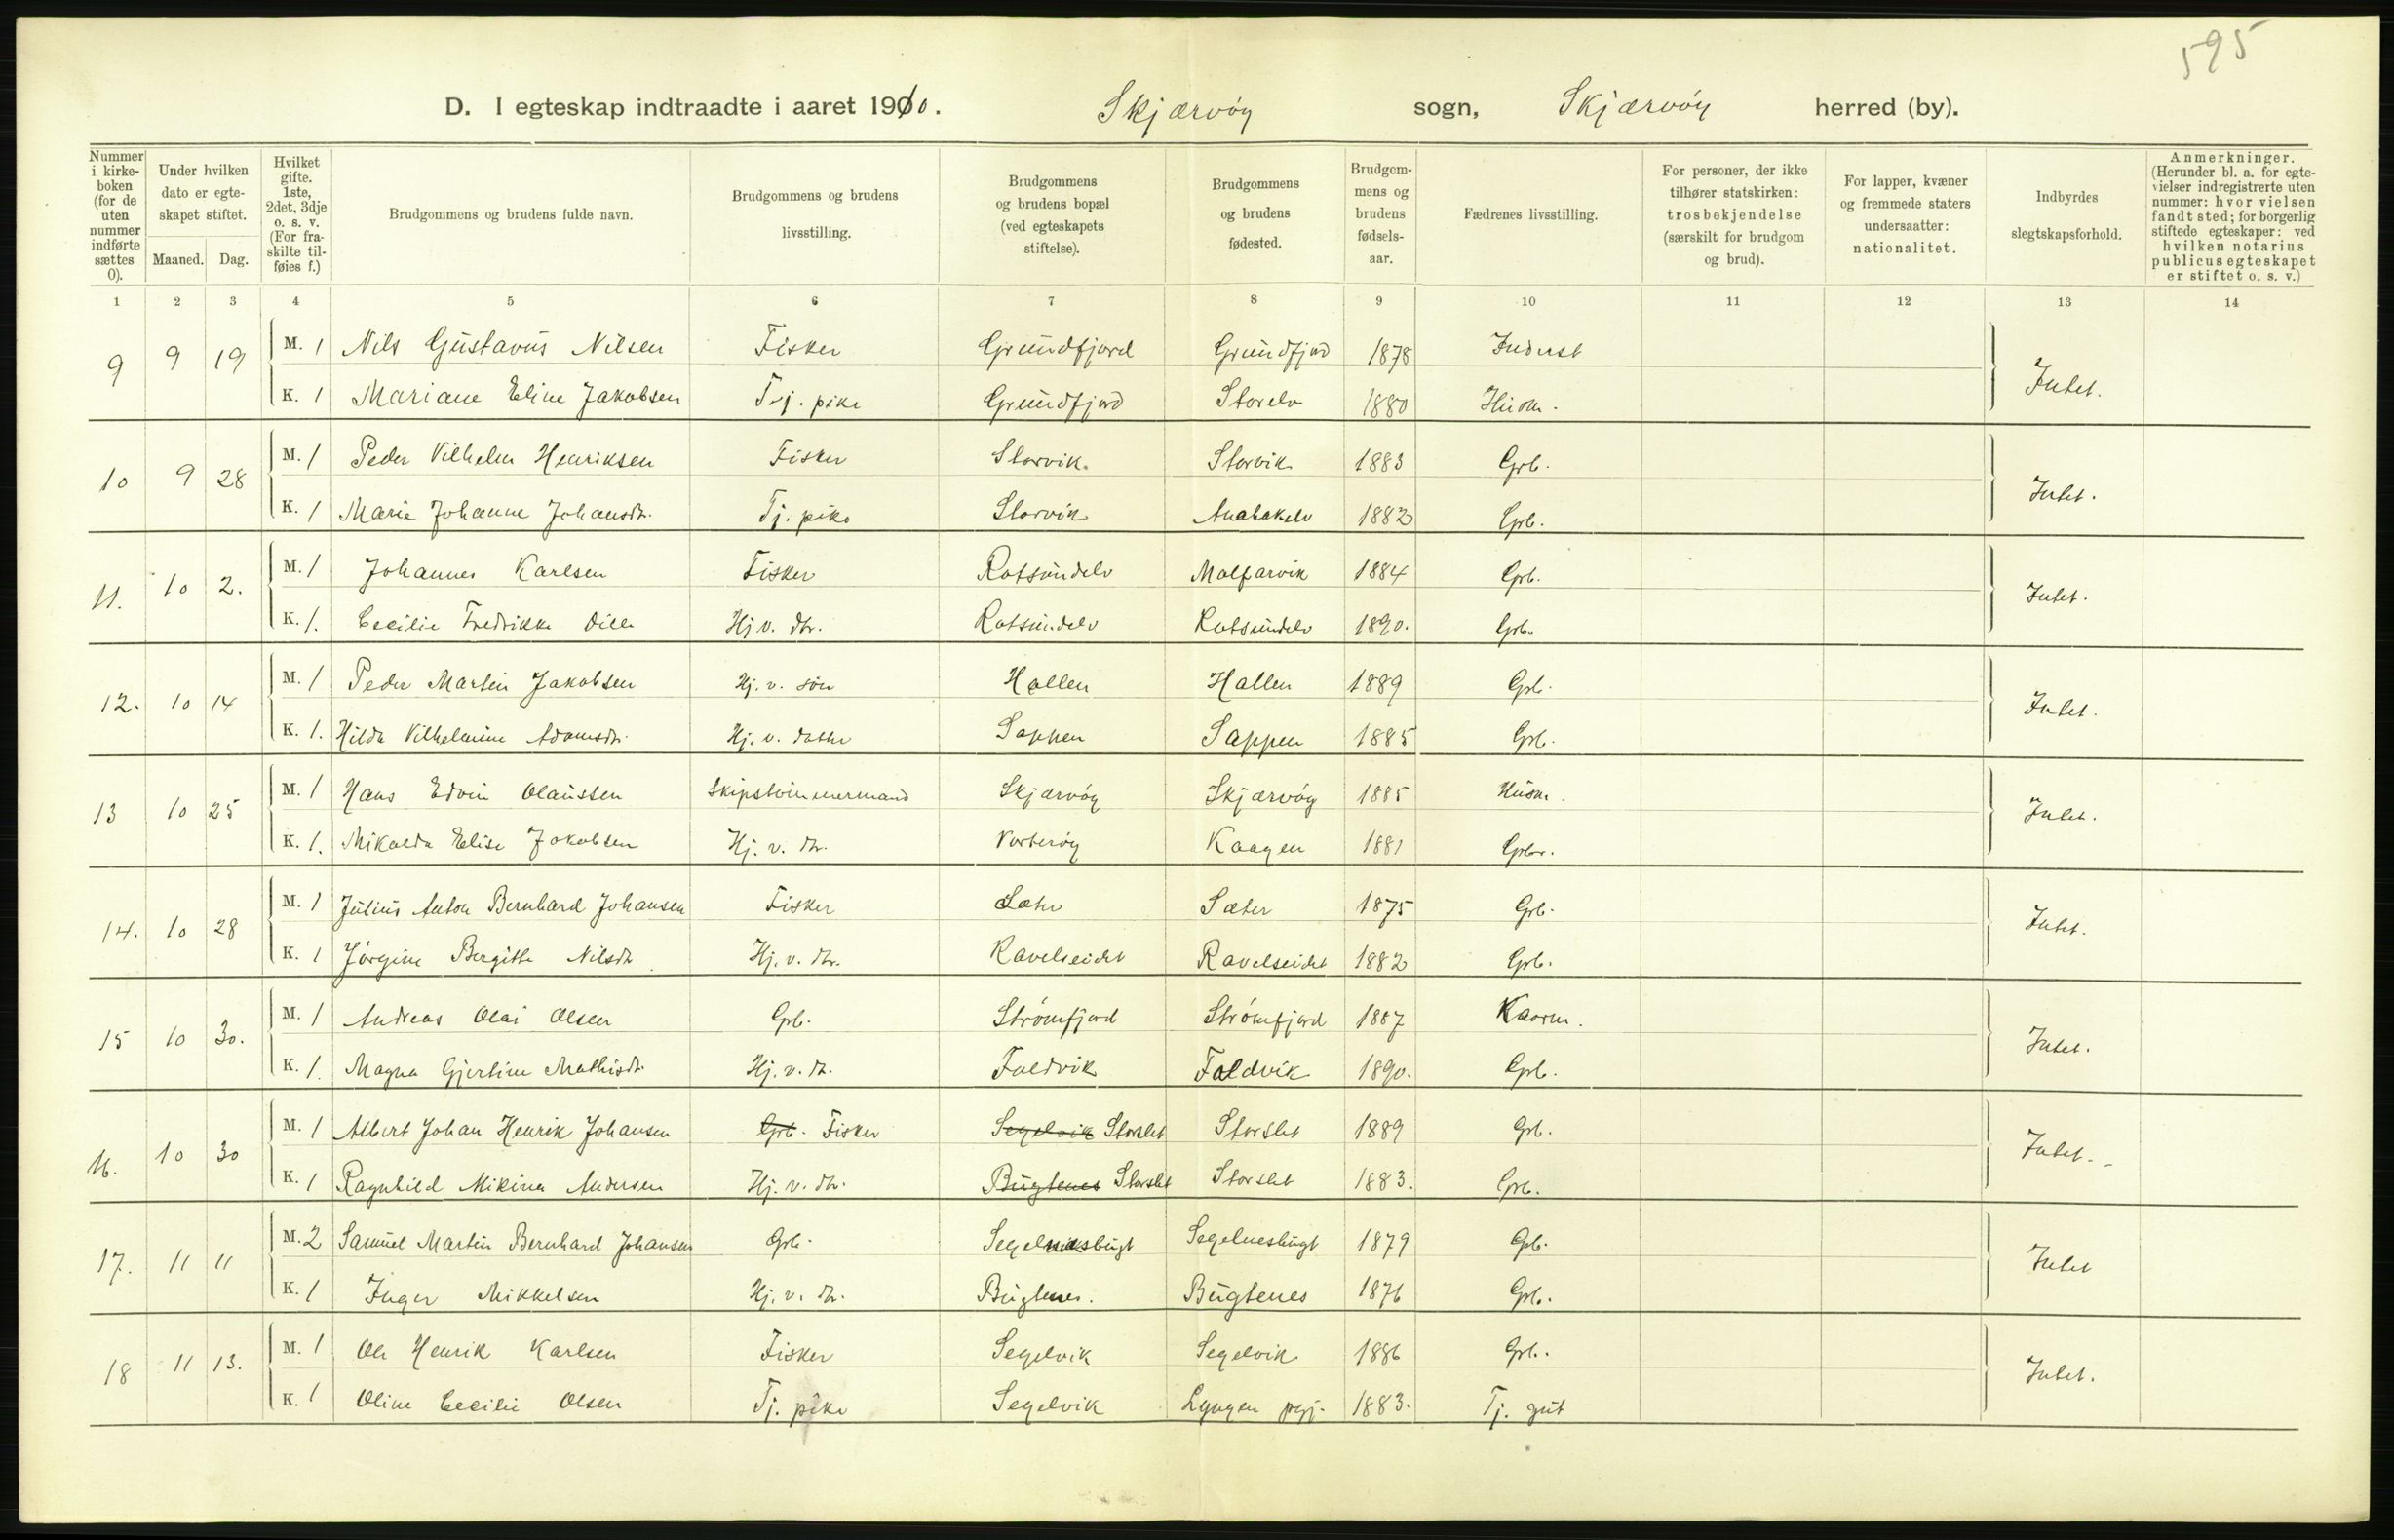 595
D. I egteskap indtraadte i aaret 1910. Skjærvöy sogn, Skjærvöy herred (by).
Nummer i kirke-boken (for de uten nummer indførte sættes 0). Under hvilken dato er egte-skapet stiftet. Maaned. Dag. Hvilket gifte. 1ste, 2det, 3dje o. s. v. (For fra-skilte til-føies f.) Brudgommens og brudens fulde navn. Brudgommens og brudens livsstilling. Brudgommens og brudens bopæl (ved egteskapets stiftelse). Brudgommens og brudens fødested. Brudgom-mens og brudens fødsels-aar. Fædrenes livsstilling. For personer, der ikke tilhører statskirken: trosbekjendelse (særskilt for brudgom og brud). For lapper, kvæner og fremmede staters undersaatter: nationalitet. Indbyrdes slegtskapsforhold. Anmerkninger. (Herunder bl. a. for egte-vielser indregistrerte uten nummer: hvor vielsen fandt sted; for borgerlig stiftede egteskaper: ved hvilken notarius publicus egteskapet er stiftet o. s. v.)
1 2 3 4 5 6 7 8 9 10 11 12 13 14
9 9 19 M. 1 Nils Gustavus Nilsen Fisker Grundfjord Grundfjord 1878 Inderst Intet.
K. 1 Mariane Eline Jakobsen Tj. pike Grundfjord Storelv 1880 Husm.
10 9 28 M. 1 Peder Vilhelm Henriksen Fisker Storvik. Storvik 1883 Grb. Intet.
K. 1 Marie Johanne Johansdtr. Tj. pike Storvik 1882 Grb.
11. 10 2. M. 1 Johannes Karlsen Fisker Rotsundelv Molfarvik 1884 Grb. Intet.
K. 1. Cecilie Fredrikke Hj v. dtr. Rotsundelv Rotsundelv 1890. Grb.
12. 10 14 M. 1 Peder Martin Jakobsen Hj. v. sön Hallen Hallen 1889 Grb. Intet.
K. 1. Hilda Vilhelmine Adamsdtr. Hj. v. datter Sappen Sappen 1885 Grb.
13 10 25 M. 1 Hans Edvin Olaussen Skipstömmermand Skjærvöy Skjærvöy 1885 Husm. Intet.
K. 1. Mikalda Elise Jakobsen Hj. v. dtr. Vorteröy Kaagen 1881 Grbr.
14. 10 28 M. 1 Julius Anton Bernhard Johansen Fisker Sæter Sæter 1875 Grb. Intet.
K. 1 Jörgine Bergitte Nilsdtr Hj. v. dtr. Ravelseidet Ravelseidet 1882 Grb.
15 10 30. M. 1 Andreas Olai Olsen Grb. Strömfjord Strömfjord 1887 Kaarm. Intet.
K. 1. Magna Gjertine Mathisdtr. Hj. v. dtr. Foldvik Foldvik 1890. Grb.
16. 10 30 M. 1 Albert Johan Henrik Johansen Grb. Fisker Segelvik Storslet Storslet 1889 Grb. Intet.
K. 1 Ragnhild Mikina Andersen Hj. v. dtr. Bugtenes Storslet Storslet 1883. Grb.
17. 11 11 M. 2 Samuel Martin Bernhard Johansen Grb. Segelnesbugt Segelnesbugt 1879 Grb. Intet
K. 1 Inger Mikkelsen Hj. v. dtr. Bugtenes. Bugtenes 1876 Grb.
18 11 13. M. 1 Ole Henrik Karlsen Fisker Segelvik Segelvik 1886 Grb. Intet.
K. 1 Oline Cecilie Olsen Tj. pike Segelvik Lyngen pgj. 1883. Tj. gut